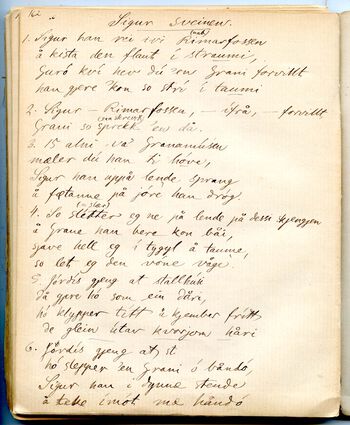 162
Sigur sveinen.
1. Sigur han rei ivi Rimarfossen
å kista den flaut i straumi
Guró kvi hev dú ens Grani forvillt
han gjere kon so strí i taumi
2. Sigur – Rimarfossen, – ifrå, – forvillt
Grani so sprekk en dú.
3. 15 alni va Granamúlen
mæler dú han ti hóve,
Sigur han uppå lende sprang
å føtanne på jóre han dróg
4. So sletter eg ne på lende på dessi
å Grane han bere kon båi,
sjave helt eg i tygyl å taume,
so let eg den vóne våge
5. Jórdis gjeng at stallhús
då gjere hó som ein dåre,
hó klypper títt å kjember frítt,
de glein utav kvørsjom håri
6. Jórdis gjeng at st
hó slepper en Grani ó båndó,
Sigur han i dynne stende
å teke imot mæ håndó